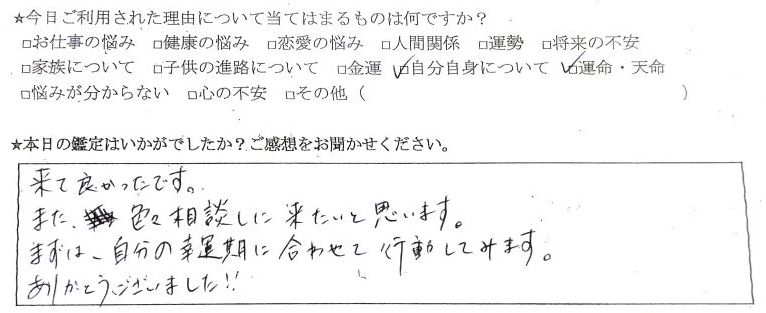 ☆今日ご利用された理由について当てはまるものは何ですか?
□お仕事の悩み □健康の悩み □恋愛の悩み □人間関係 □運勢 □将来の不安
□家族について □子供の進路について □金運 ☑自分自身について ☑運命・天命
□悩みが分からない □心の不安 □その他( )
☆本日の鑑定はいかがでしたか?ご感想をお聞かせください。
来て良かったです。
また、色々相談しに来たいと思います。
まずは、自分の幸運期に合わせて行動してみます。
ありがとうございました!!